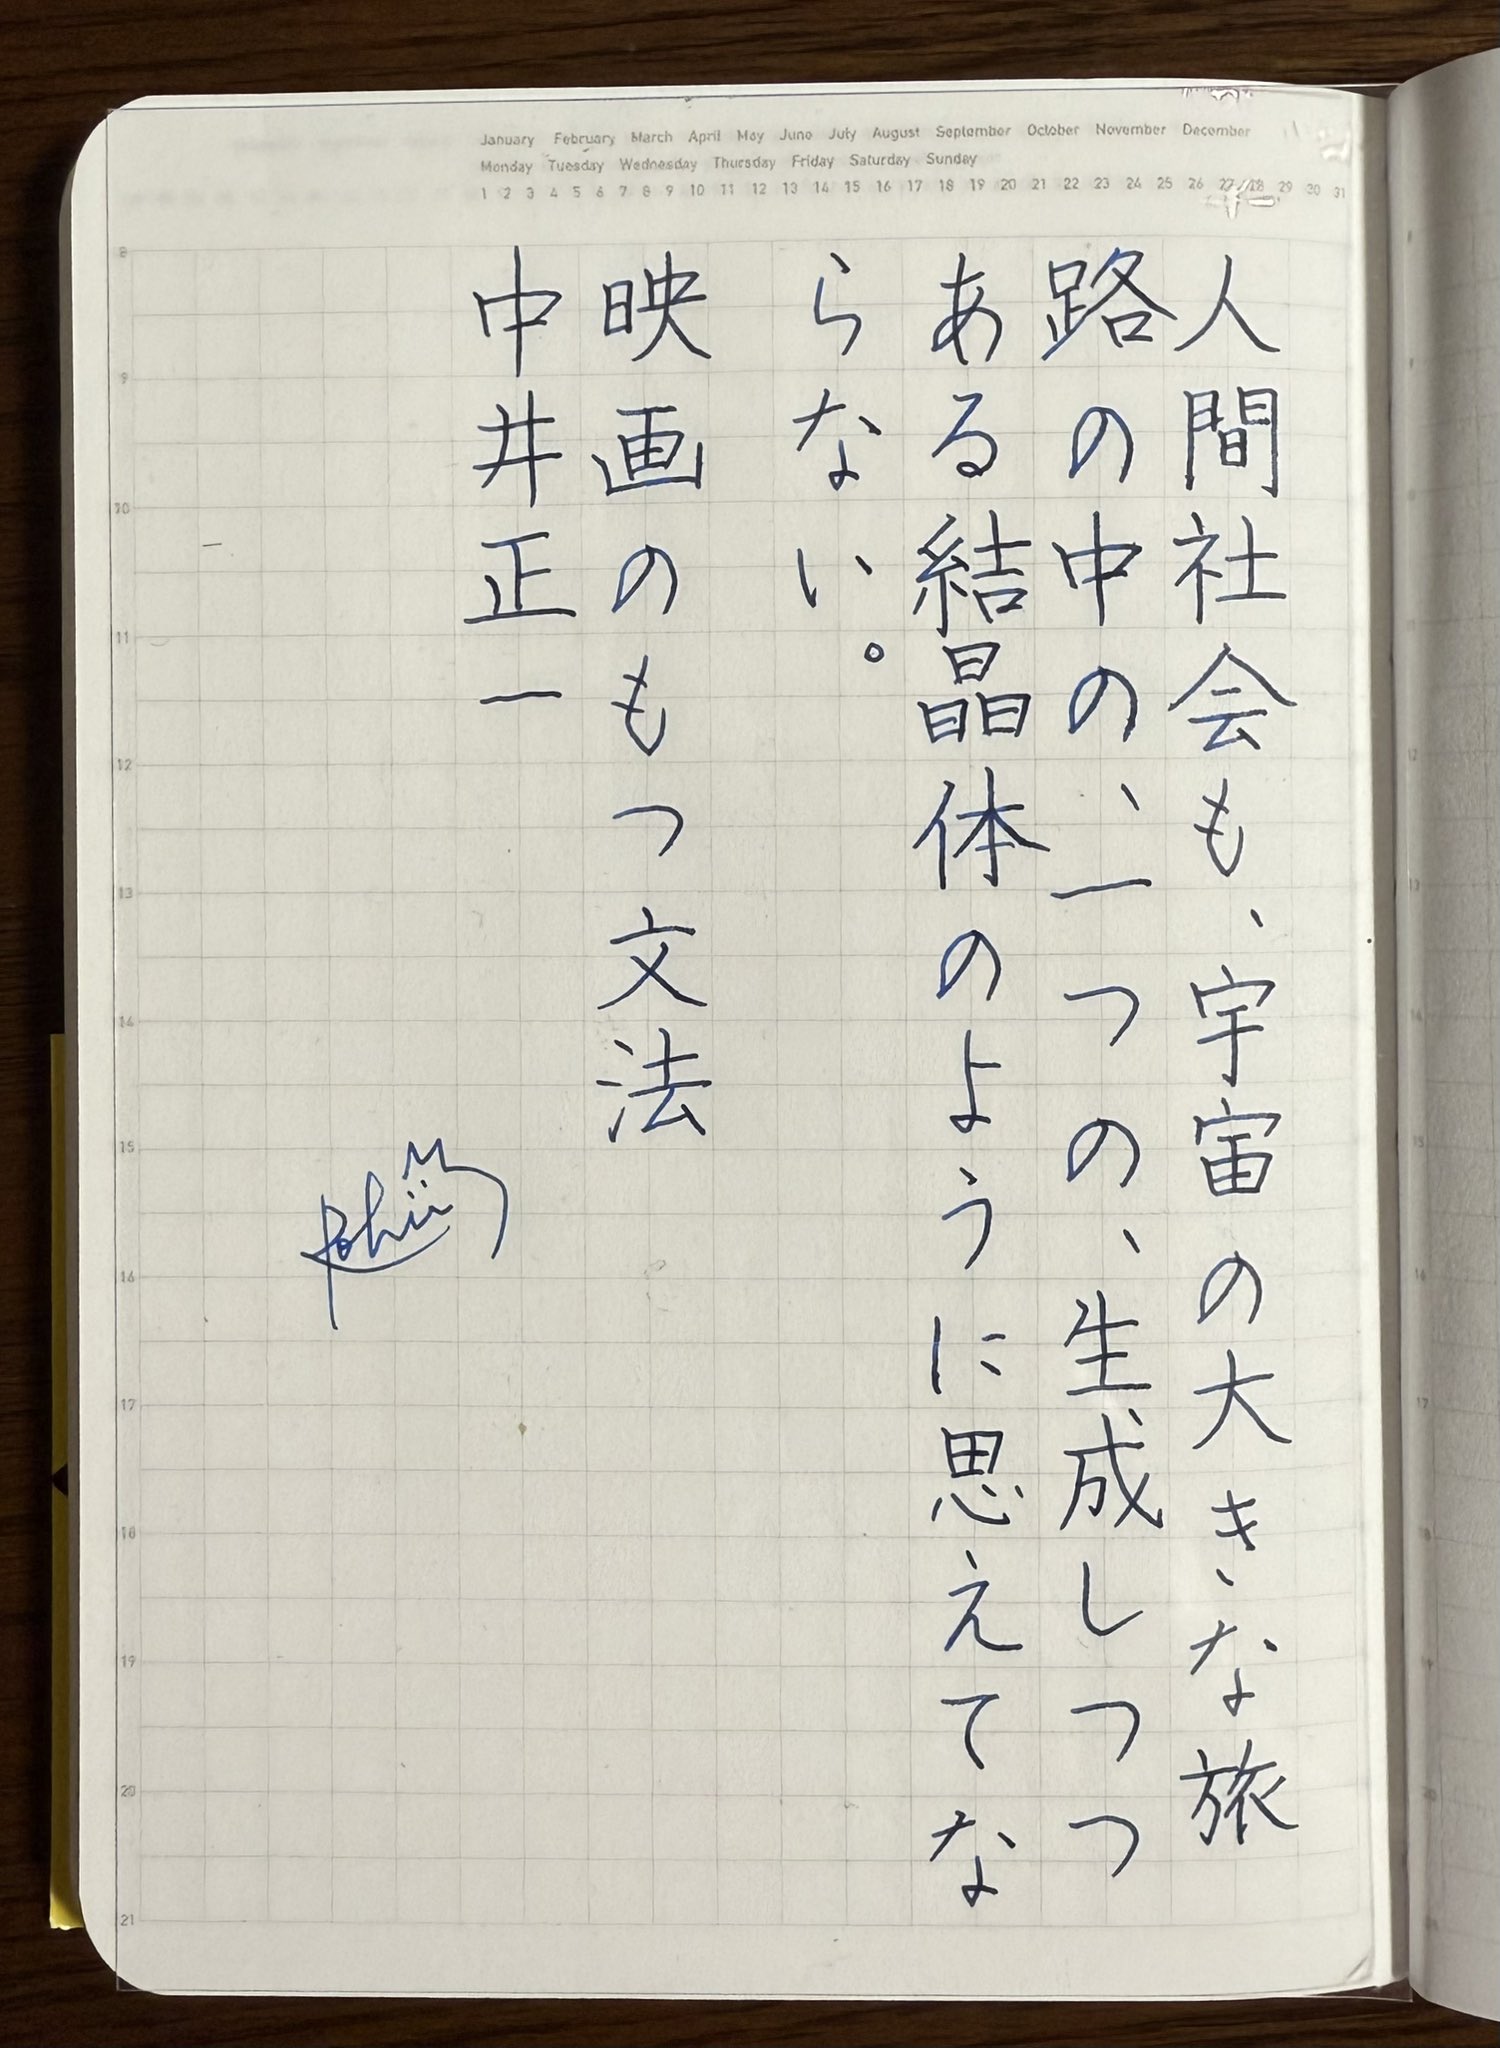 January February March April May June July August September October November December
Monday Tuesday Wednesday Thursday Friday Saturday Sunday
1 2 3 4 5 6 7 8 9 10 11 12 13 14 15 16 17 18 19 20 21 22 23 24 25 26 27 28 29 30 31
人間社会も、宇宙の大きな旅
路の中の、一つの、生成しつつ
ある結晶体のように思えてな
らない。
映画のもつ文法
中井正一
8
9
10
11
12
13
14
15
16
17
18
19
20
21